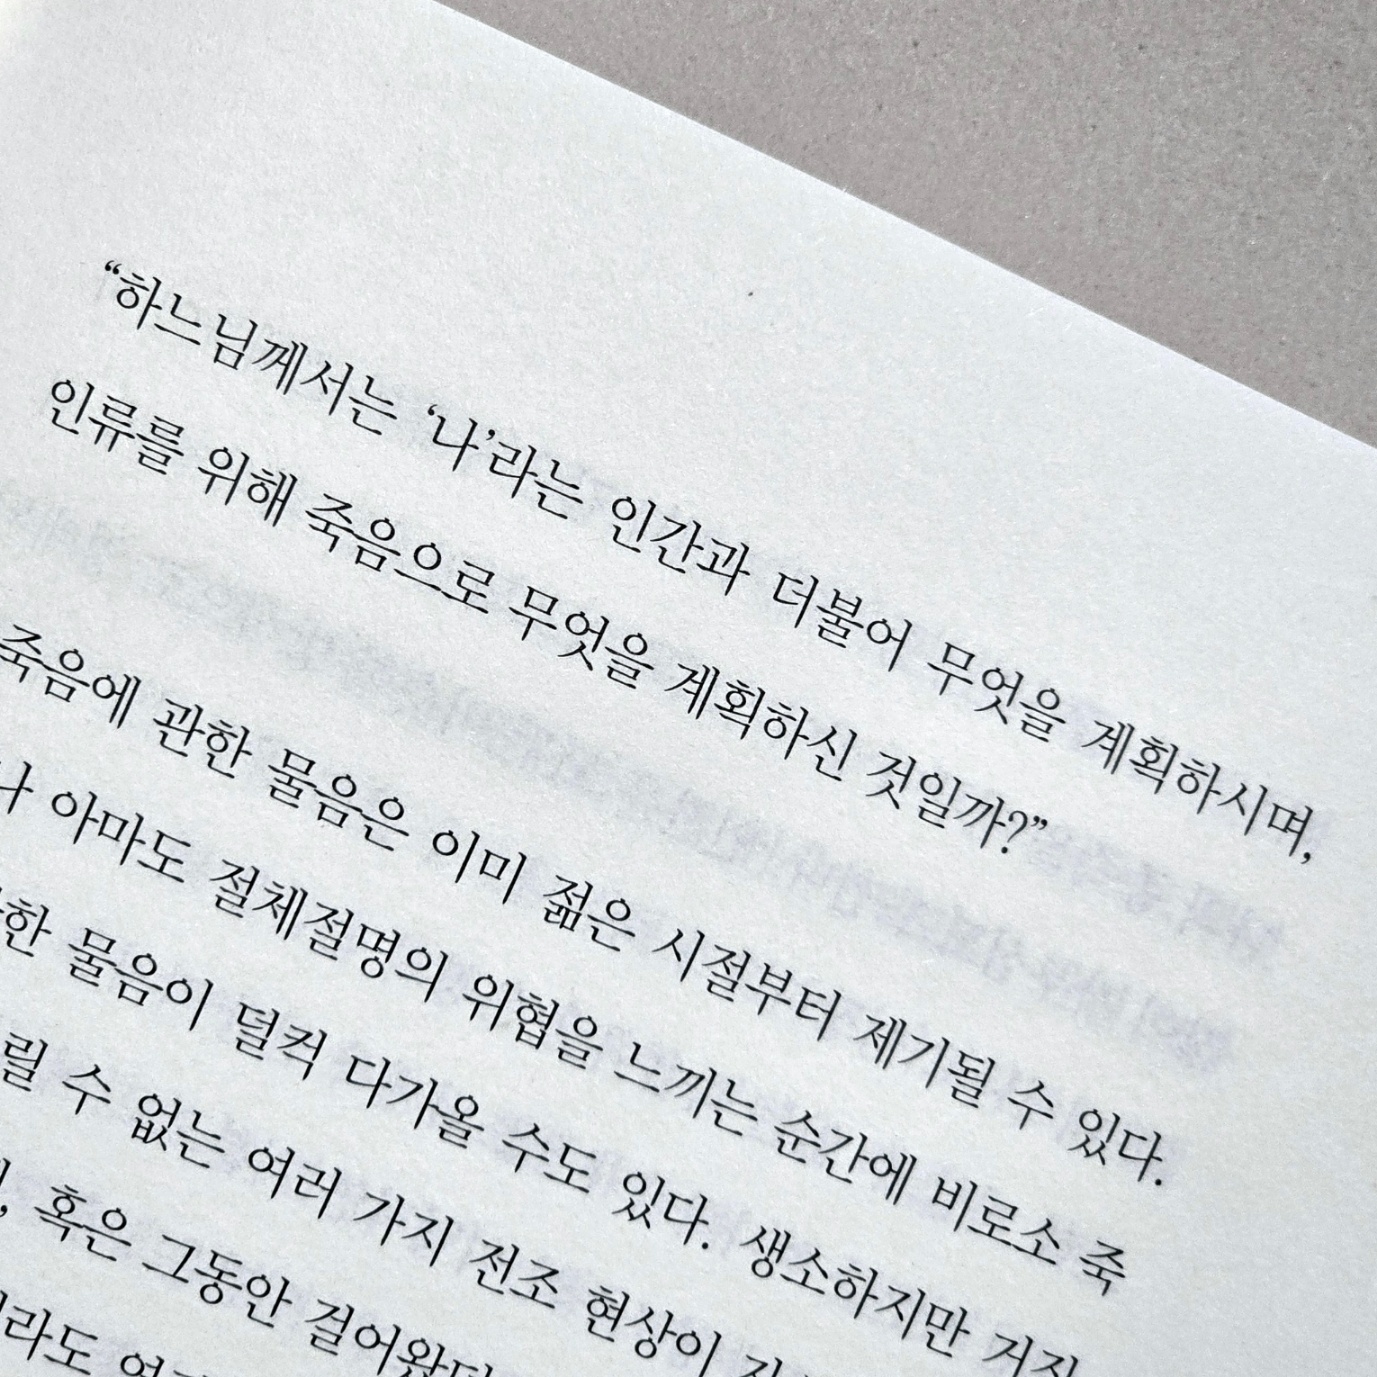 “하느님께서는 ‘나’라는 인간과 더불어 무엇을 계획하시며,
인류를 위해 죽음으로 무엇을 계획하신 것일까?”
죽음에 관한 물음은 이미 젊은 시절부터 제기될 수 있다.
아마도 절체절명의 위협을 느끼는 순간에 비로소 죽
물음이 덜컥 다가올 수도 있다. 생소하지만
수 없는 여러 가지 전조 현상이
혹은 그동안